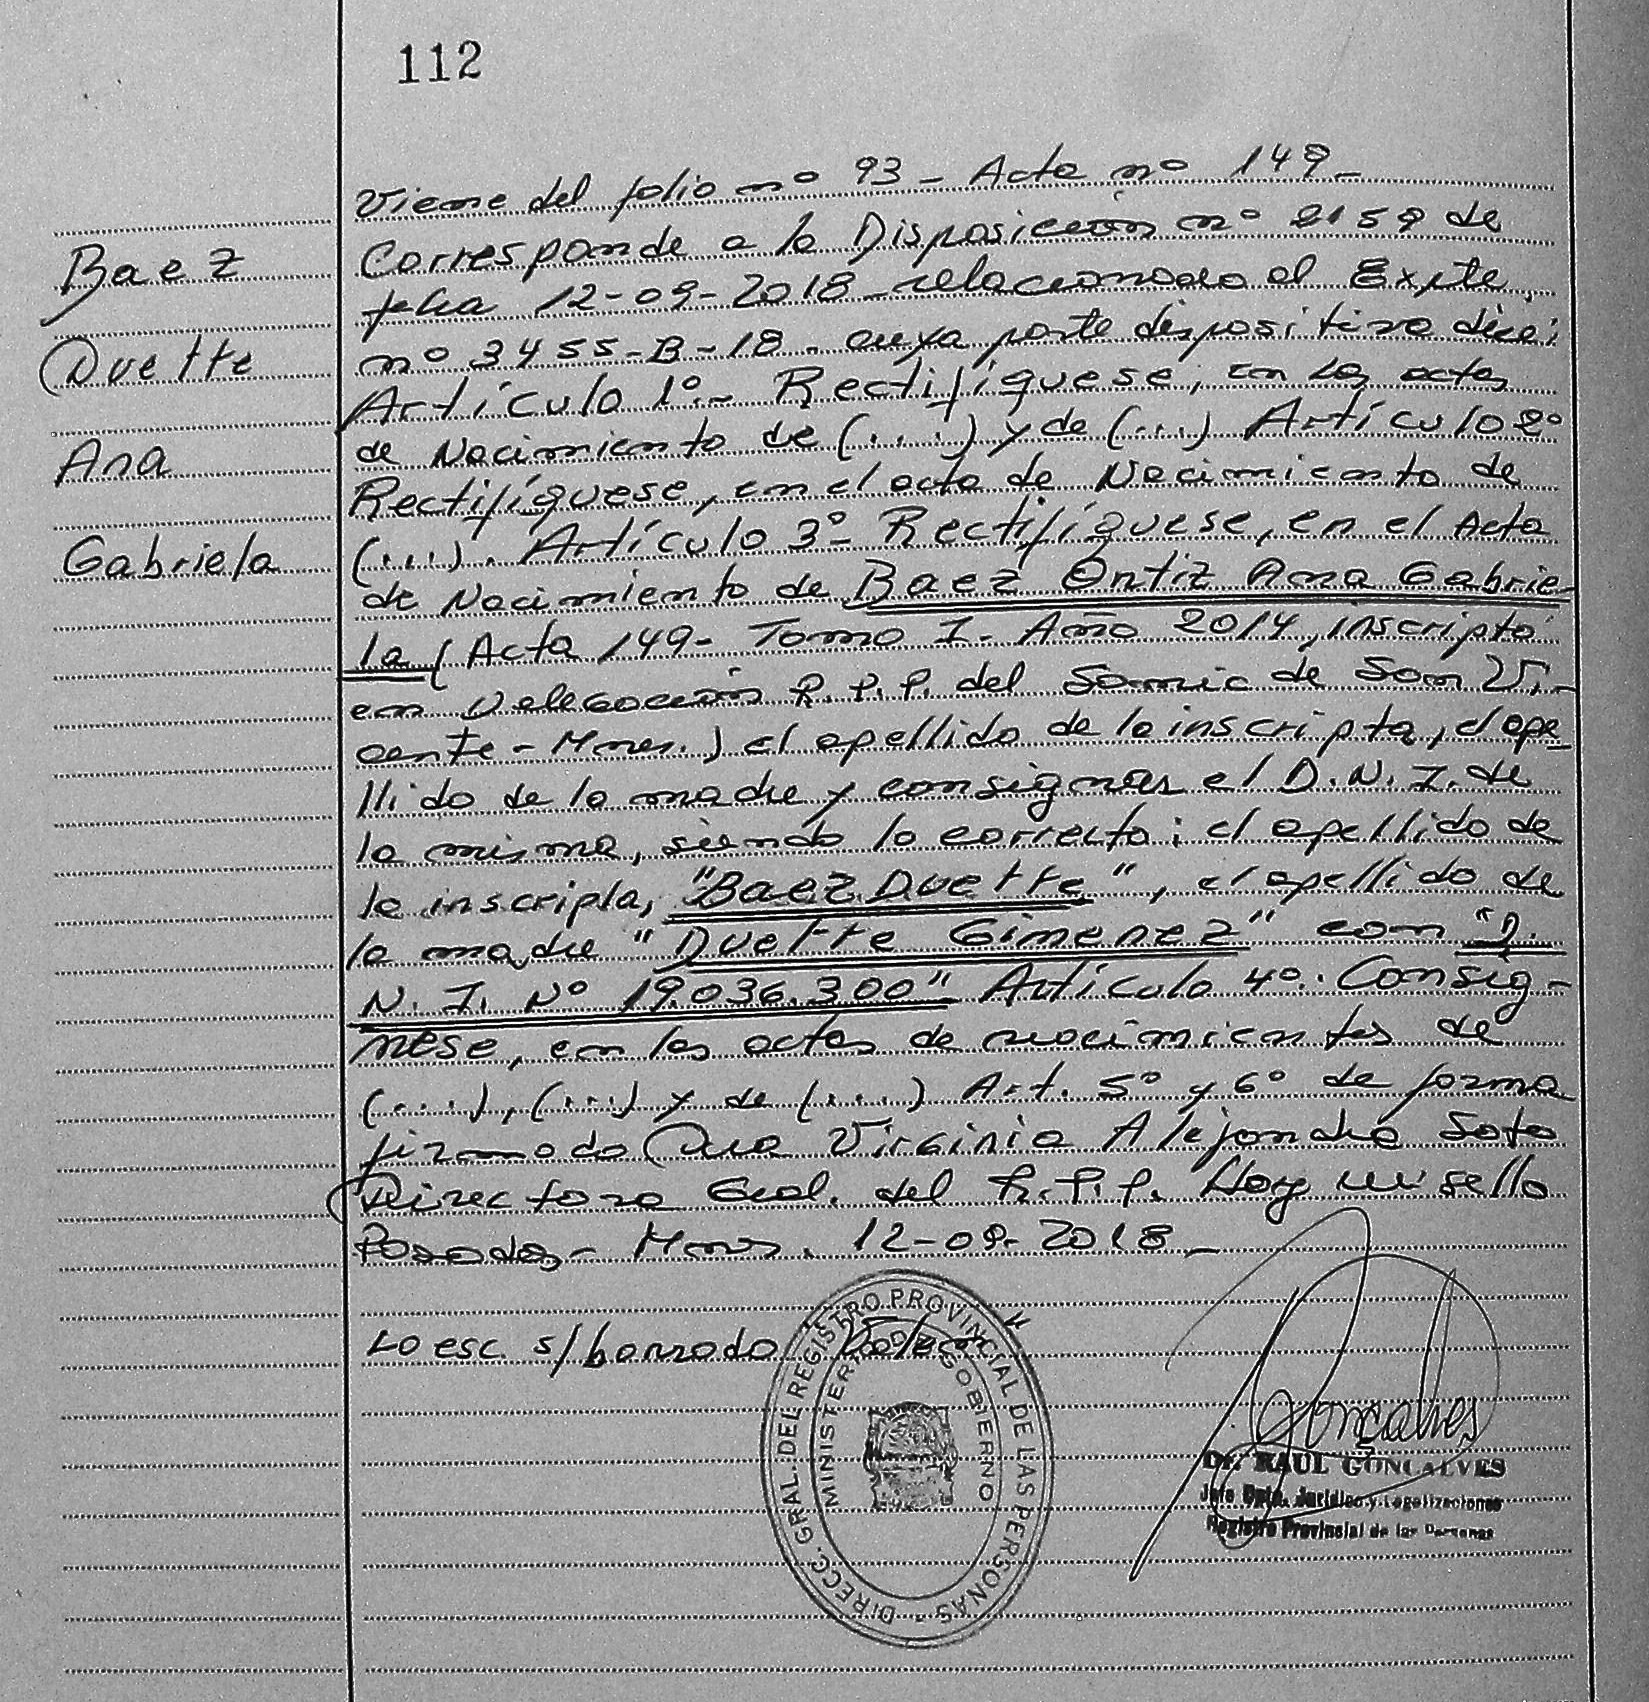 112
Viene del folio nº 93 - Acta nº 149 -
Corresponde a la Disposición nº 2159 de
fecha 12-09-2018 relacionado al Expte.
nº 3455-B-18 - cuya parte dispositiva dice:
Artículo 1º.- Rectifíquese, en las actas
de Nacimiento de (...) y de (...) Artículo 2º
Rectifíquese, en el acta de Nacimiento de
(...). Artículo 3º- Rectifíquese, en el Acta
de Nacimiento de Baez Ortiz Ana Gabrie-
la (Acta 149- Tomo I. Año 2014, inscripta
en Delegación R.P.P. del Samic de San Vi-
cente - Mnes.) el apellido de la inscripta, el ape-
llido de la madre y consignar el D.N.I. de
la misma, siendo lo correcto: el apellido de
la inscripta, "Baez Duette", el apellido de
la madre "Duette Gimenez" con "D.
N.I. Nº 19.036.300" Artículo 4º. Consíg-
nese, en las actas de nacimientos de
(...), (...) y de (...) Art. 5º y 6º de forma
firmado Dra Virginia Alejandra Soto
Directora Gral. del R.P.P. Hay un sello
Posadas - Mnes. 12-09-2018 -
Lo esc. s/borrado
Baez
Duette
Ana
Gabriela
DIRECC. GRAL. DEL REGISTRO PROVINCIAL DE LAS PERSONAS -
MINISTERIO DE GOBIERNO
Gonçalves
Dr. RAUL GONCALVES
Jefe Dpto. Jurídico y Legalizaciones
Registro Provincial de las Personas